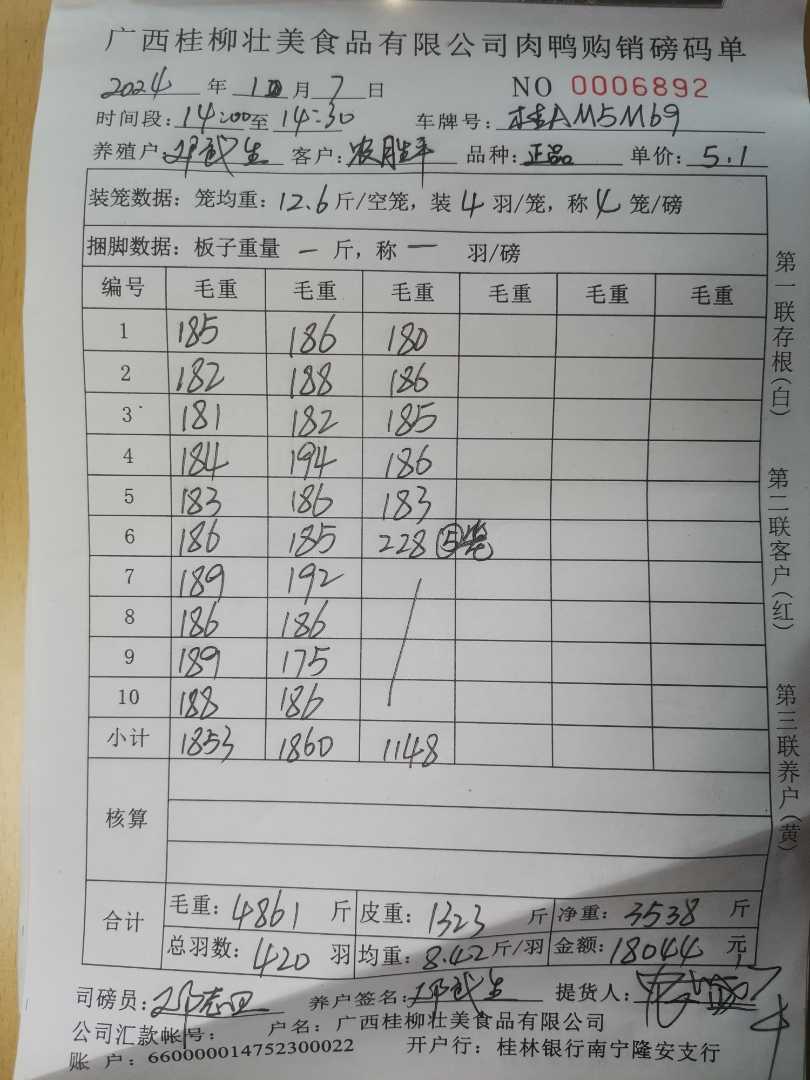 广西桂柳壮美食品有限公司肉鸭购销磅码单
2024 年 1 月 7 日 NO 0006892
时间段: 14:00 至 14:30 车牌号: 桂AM5M69
养殖户: 邓武生 客户: 农胜平 品种: 正品 单价: 5.1
装笼数据: 笼均重: 12.6 斤/空笼, 装 4 羽/笼, 称 4 笼/磅
捆脚数据: 板子重量 一 斤, 称 一 羽/磅
编号 毛重 毛重 毛重 毛重 毛重 毛重
1 185 186 180
2 182 188 186
3 181 182 185
4 184 194 186
5 183 186 183
6 186 185 228 ⑤笼
7 189 192
8 186 186
9 189 175
10 188 186
小计 1853 1860 1148
核算
合计
毛重: 4861 斤 皮重: 1323 斤 净重: 3538 斤
总羽数: 420 羽 均重: 8.42 斤/羽 金额: 18044 元
司磅员: 邓志卫 养户签名: 邓武生 提货人:
公司汇款帐号: 户名: 广西桂柳壮美食品有限公司
账 户: 660000014752300022 开户行: 桂林银行南宁隆安支行
第一联存根(白)
第二联客户(红)
第三联养户(黄)